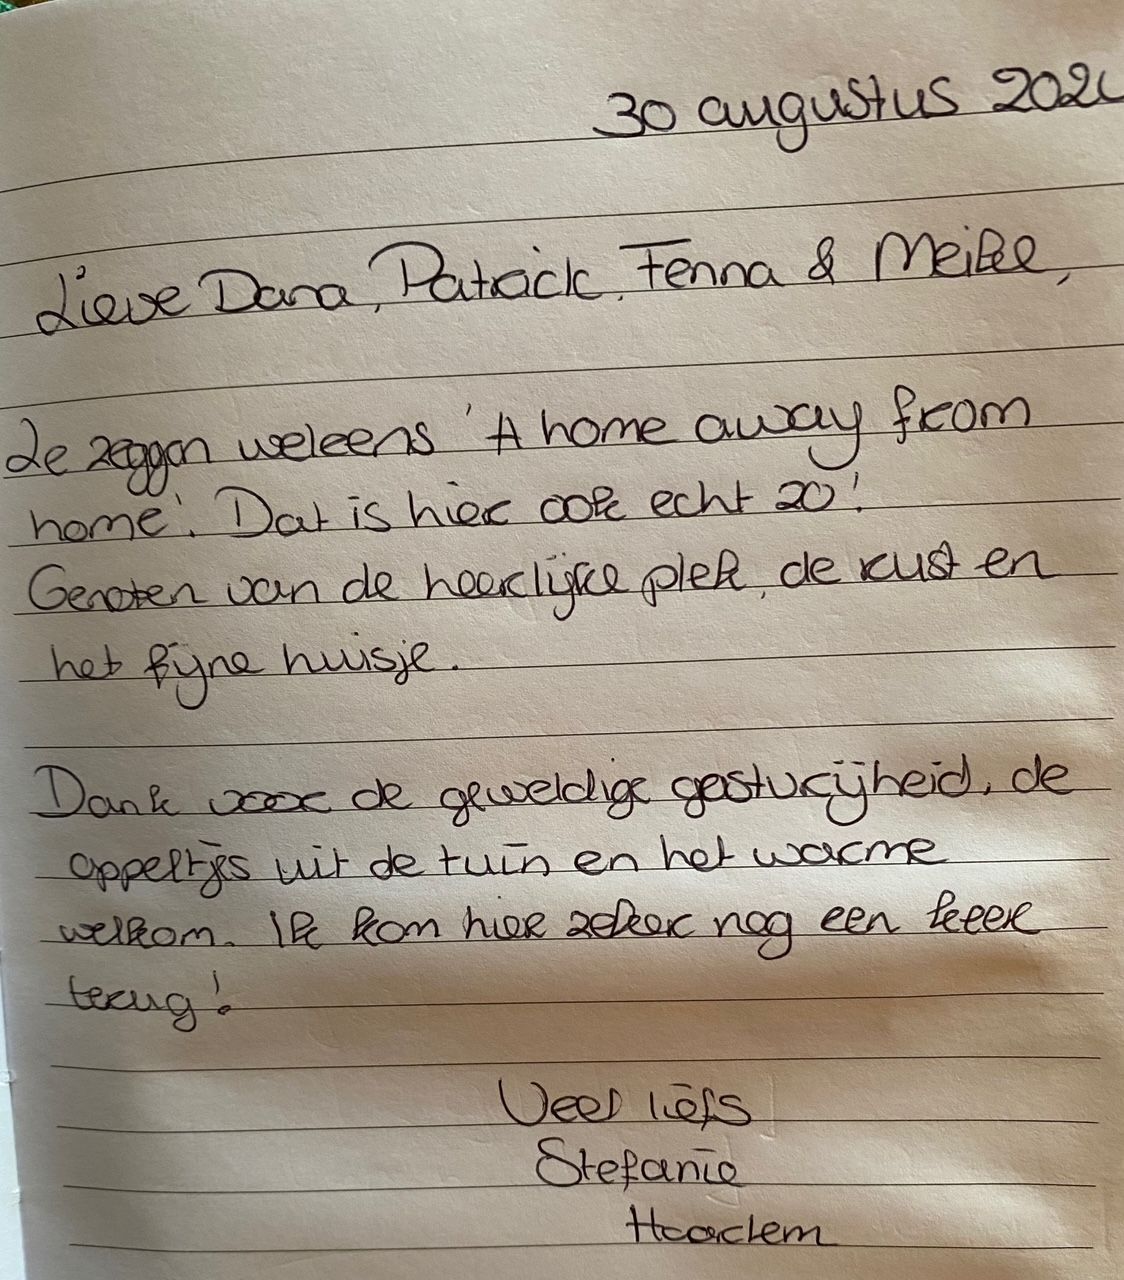 30 augustus 202
Lieve Dana, Patrick, Fenna & Meike,
Ze zeggen weleens 'A home away from
home'. Dat is hier ook echt zo!
Genoten van de heerlijke plek, de rust en
het fijne huisje.
Dank voor de geweldige gastvrijheid, de
appeltjes uit de tuin en het warme
welkom. Ik kom hier zeker nog een keer
terug!
Veel liefs
Stefanie
Haarlem